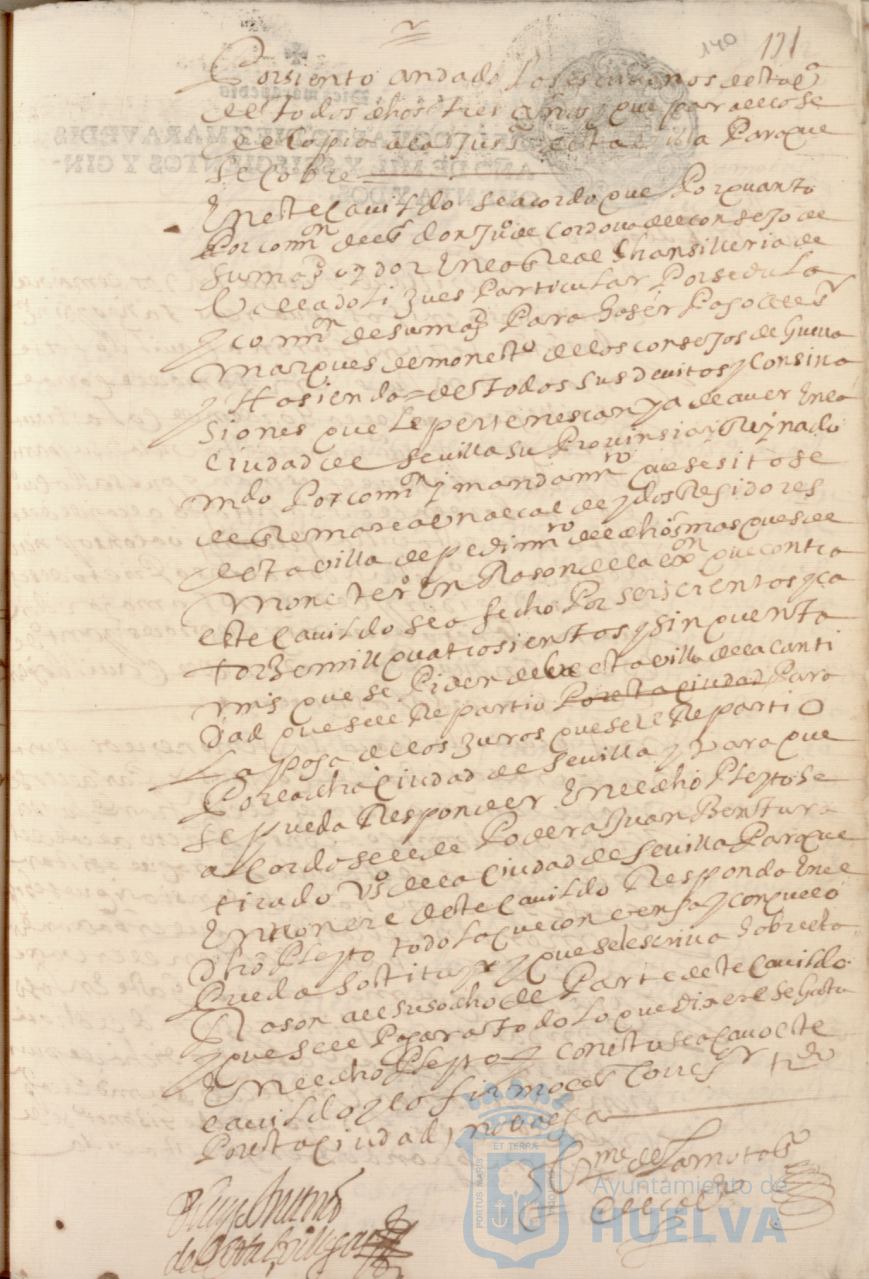 140 131
Por siento andado los escrivanos desta Vª
de todos dhos tres años que parareconse
de copia a la Jusª desta villa Para que
se cobre
En este Cavildo se acordo que Por quanto
Por comⁿ del sʳ don Juº de Cordova del consejo de
Su magᵈ oydor En la Real Chansilleria de
Valladoli Jues Particular Por sedula
y comⁿ de su magᵈ Para haser Pago al sʳ
Marques de monestº de los consejos de Guerra
y Hasienda de todos sus devitos y Consina
siones que le pertenescan y a de aver En la
Ciudad de Sevilla su Provinsia y Reynado
Por comⁿ y mandamᵗᵒ
de Remate al alcalde y dos Residores
desta villa de pedimᵗᵒ del dho s mar ques de
Monesterº En Rason de la exⁿ que contra
este Cavildo se a fecho Por seis cientos y ca
torze mill quatrosientos y sinquenta
mrs que se Piden debe esta villa de la canti
dad que se le Repartio Por esta ciudad Para
La Paga de los Juros que se le Repartio
Por la dha Ciudad de Sevilla y Para que
se pueda Responder En el dho Pleyto se
acordo se le de Poder a Juan Bentura
tirado Vº de la Ciudad de Sevilla Para que
En nonbre deste Cavildo Responda En el
dho Pleyto todo lo que convenga y con que lo
Pueda Sostituyr y que se le escriva sobre esta
Rason al susodho de Parte deste Cavildo
y que se le Pagara todo lo que dixere se gasta
En el dho Pleyto y con esto se acavo este
cavildo y lo firmo el
Por esta Ciudad
PORTUS MARIS
ET TERRÆ
Ayuntamiento de
HUELVA